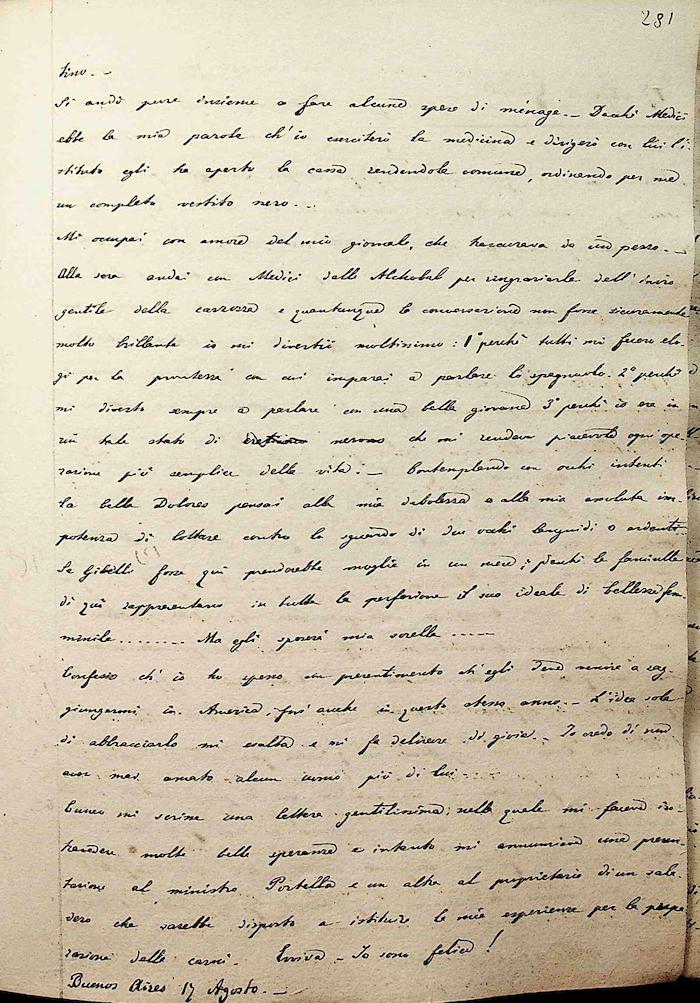 281
tino. -
Si andò pure insieme a fare alcune spese di ménage. - Dacchè Medici
ebbe la mia parola ch'io eserciterò la medicina e dirigerò con lui l'i-
stituto egli ha aperto la cassa rendendola comune, ordinando per me
un completo vestito nero. -
Mi occupai con amore del mio giornale, che trascurava da un pezzo. -
Alla sera andai con Medici dalle Alchobal per ringraziarle dell'invio
gentile della carrozza e quantunque la conversazione non fosse sicuramente
molto brillante io mi divertii moltissimo: 1° perchè tutti mi fecero elo-
gi per la prontezza con cui imparai a parlare lo spagnuolo. 2° perchè
mi diverto sempre a parlare con una bella giovane 3° perchè io era in
un tale stato di nervoso che mi rendeva piacevole ogni ope-
razione più semplice della vita. - Contemplando con occhi intenti
la bella Dolores pensai alla mia debolezza e alla mia assoluta im-
potenza di lottare contro lo sguardo di due occhi languidi o ardenti.
Se Gibelli fosse qui prenderebbe moglie in un mese; perchè le fanciulle
di quì rappresentano in tutta la perfezione il suo ideale di bellezza fem-
minile ........ Ma egli sposerà mia sorella .....
Confesso ch'io ho spesso un presentimento ch'egli deve venire a rag-
giungermi in America, fors'anche in questo stesso anno. - L'idea sola
di abbracciarlo mi esalta e mi fa delirare di gioia. - Io credo di non
aver mai amato alcun uomo più di lui. - .
Cuneo mi scrisse una lettera gentilissima, nella quale mi faceva in-
travedere molte belle speranze e intanto mi annunciava una presen-
tazione al ministro Portella e un altra al proprietario di un sala-
dero che sarebbe disposto a istituire le mie esperienze per la prepa-
razione delle carni. Evviva - Io sono felice!
Buenos Aires 17 Agosto. -